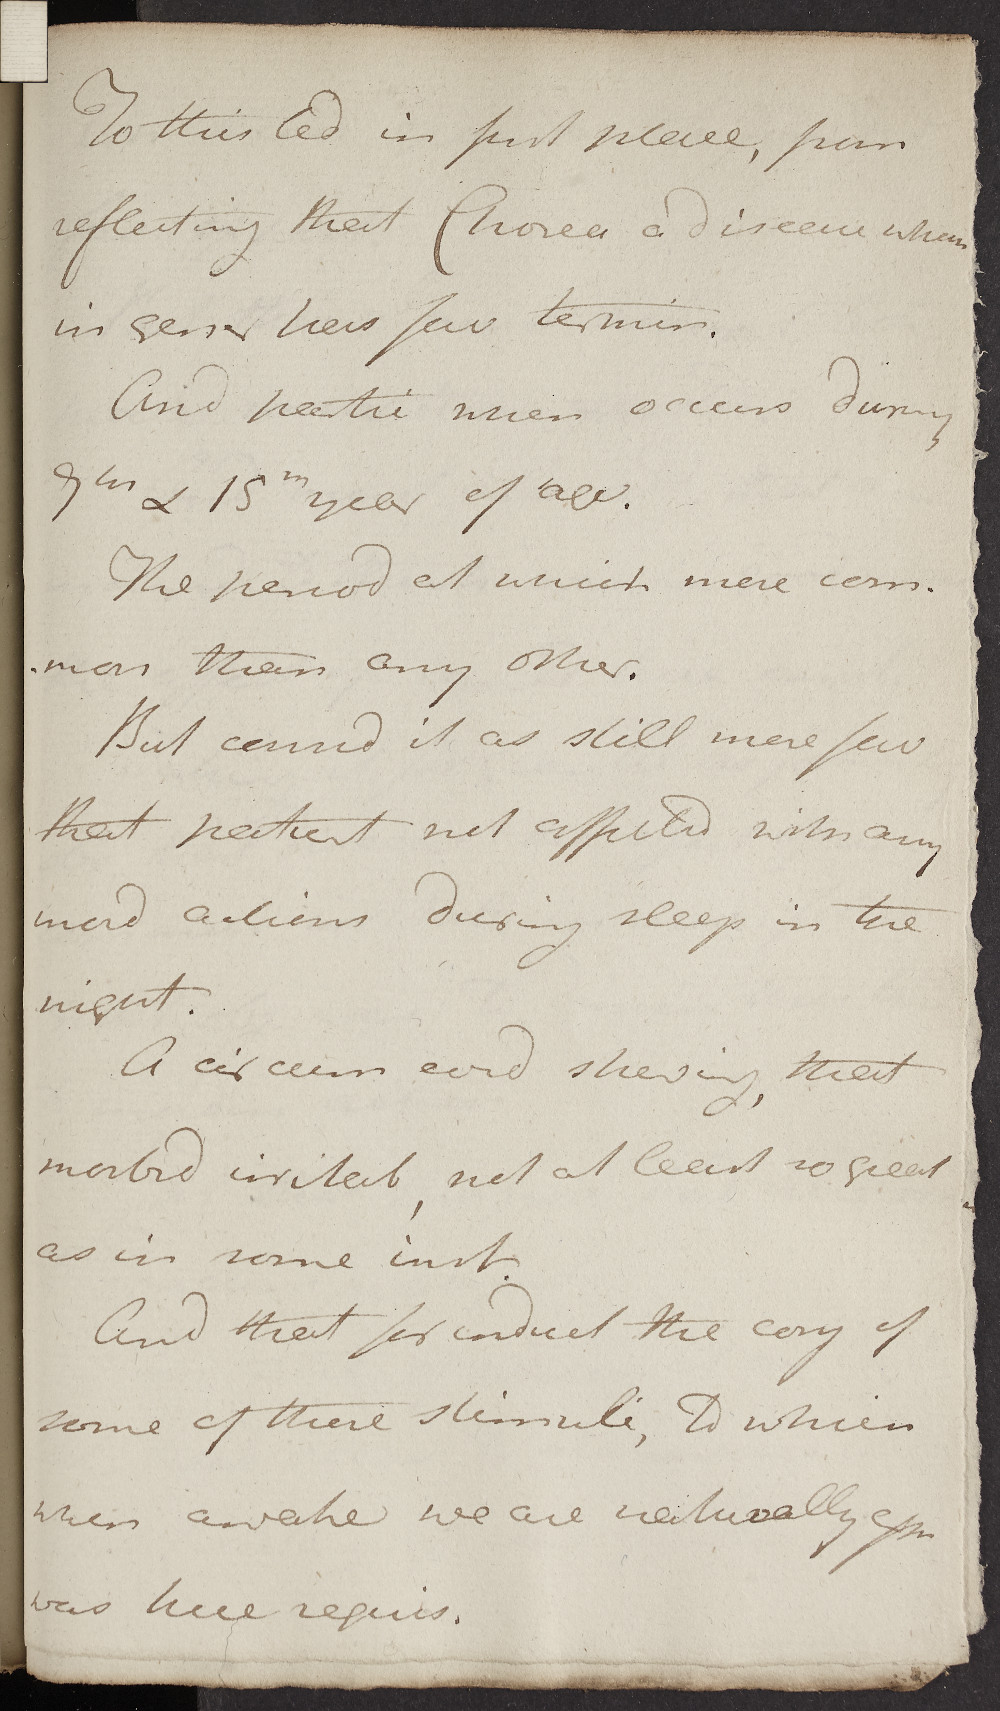 To this led in first place, from
reflecting that Chorea a disease when
in gener has fav termin.
And partic when occurs during
9th & 15th year of age.
The period at which more com-
-mon than any other.
But consid it as still more fav
that patient not affected with any
morb actions during sleep in the
night.
A circum shewing, that
morbid irritab, not at least so great
as in some inst.
And that for induct the cony of
some of these stimuli, to which
when awake we are naturally
was here requis.